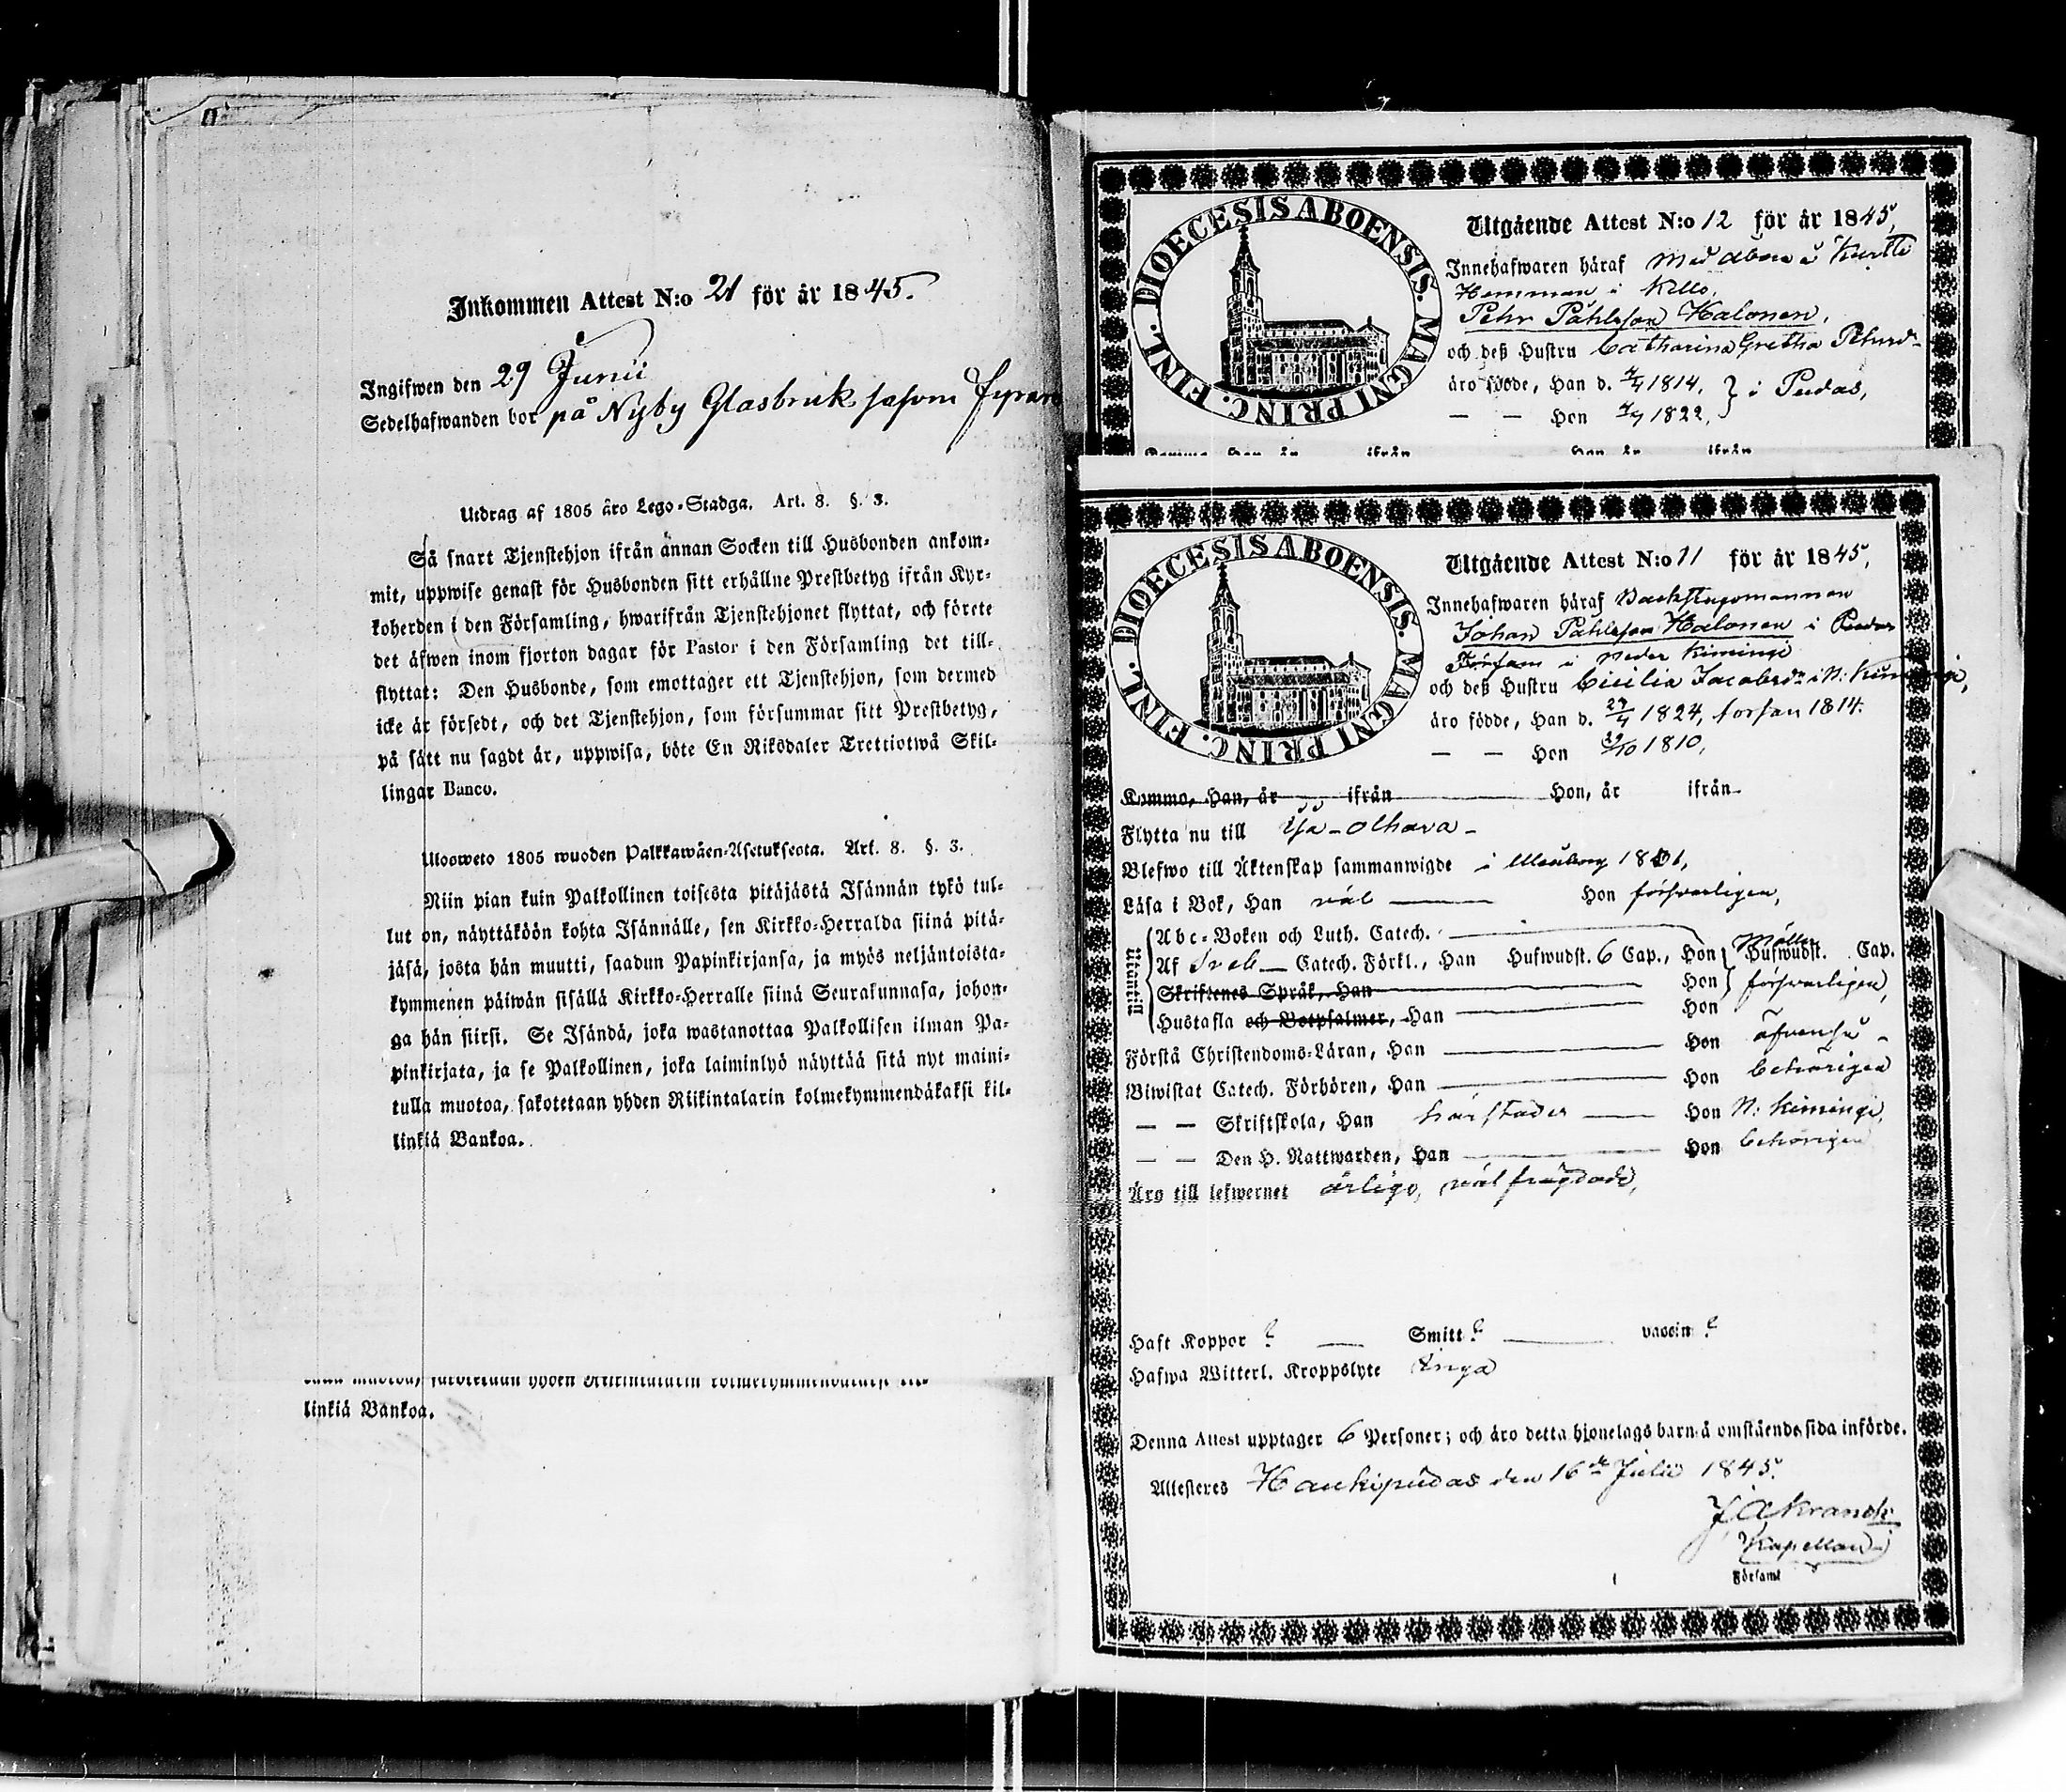 Inkommen Attest N:o 21 för år 1845.
Ingifwen den 29 Junii
Sedelhafwanden bor på Nyby Glasbruk såsom fyrare
Utdrag af 1805 åro Lego-Stadga. Art. 8. §. 3.
Så snart Tjenstehjon ifrån annan Socken till Husbonden ankom-
mit, uppwise genast för Husbonden sitt erhållne Prestbetyg ifrån Kyr-
koherden i den Församling, hwarifrån Tjenstehjonet flyttat, och förete
det äfwen inom fjorton dagar för Pastor i den Församling det till-
flyttat: Den Husbonde, som emottager ett Tjenstehjon, som dermed
icke är försedt, och det Tjenstehjon, som försummar sitt Prestbetyg,
på sätt nu sagdt är, uppwisa, böte En Riksdaler Trettiotwå Skil-
lingar Banco.
Ulosweto 1805 wuoden Palkkawäen-Asetuksesta. Art. 8. §. 3.
Niin pian kuin Palkollinen toisesta pitäjästä Isännän tykö tul-
lut on, näyttäköön kohta Isännälle, sen Kirkko-Herralda siinä pitä-
jäsä, josta hän muutti, saadun Papinkirjansa, ja myös neljäntoista-
kymmenen päiwän sisällä Kirkko-Herralle siinä Seurakunnasa, johon-
ga hän siirsi. Se Isändä, joka wastanottaa Palkollisen ilman Pa-
pinkirjata, ja se Palkollinen, joka laiminlyö näyttää sitä nyt maini-
tulla muotoa, sakotetaan yhden Riikintalarin kolmekymmendäkaksi kil-
linkiä Bankoa.
linkiä Bankoa.
DIOECESIS ABOENSIS. MAGNI PRINC. FINL.
Utgående Attest N:o 12 för år 1845,
Innehafwaren häraf Med åboen å Kurtti
Hemman i Kello,
Pehr Påhlsson Halonen,
och deß Hustru Catharina Gretha Pehrsd.
äro födde, Han d. 4/4 1814, } i Pudas,
— — Hon 4/7 1822,
DIOECESIS ABOENSIS. MAGNI PRINC. FINL.
Utgående Attest N:o 11 för år 1845,
Innehafwaren häraf Backstugomannen
Johan Påhlsson Halonen i Pudas
Församl i Neder Kiminge
och deß Hustru Cicilia Jacobsdr i N: Kiminge,
äro födde, Han d. 24/4 1824, förfan 1814.
— — Hon 29/10 1810,
Komma, Han, år ifrån Hon, år ifrån
Flytta nu till Ijå-Olhava-
Blefwo till Äktenskap sammanwigde i Uleåborg 1841,
Läsa i Bok, Han väl — Hon försvarligen,
Utantill
Abc-Boken och Luth. Catech.
Af Sveb— Catech. Förkl., Han Hufwudst. 6 Cap., Hon Hufwudst. Cap.
Skriftenes Språk, Han Hon försvarligen,
Hustafla och Botpsalmer, Han Hon
Förstå Christendoms-Läran, Han — Hon äfvenså -
Biwistat Catech. Förhören, Han — Hon behörigen
— — Skriftskola, Han härstädes — Hon N: Kiminge,
— — Den H. Nattwarden, Han — Hon behörigen
Äro till lefwernet ärliga, välfrägdade,
Haft Koppor ? — Smitt ? — vaccin ?
Hafwa Witterl. Kroppslyte Inga
Denna Attest upptager 6 Personer; och äro detta hjonelags barn å omstående sida införde.
Attesteres Haukipudas den 16de Julii 1845.
J A Kranck
Kapellan
Församl